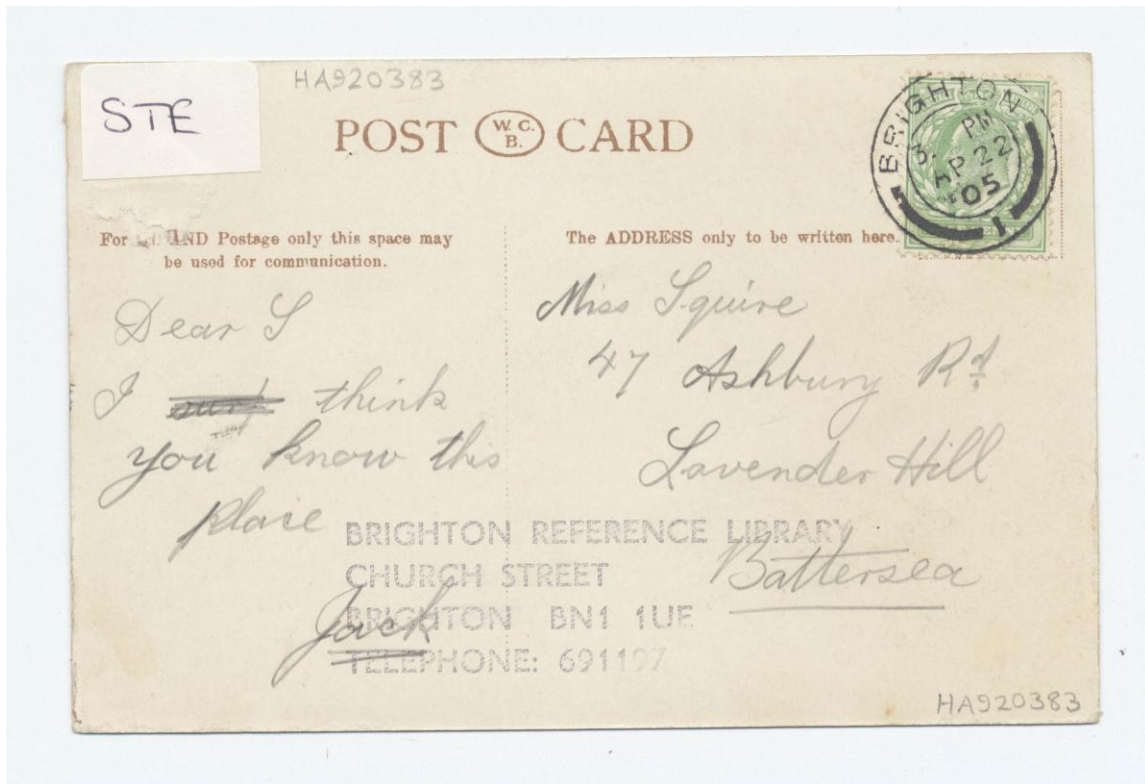 HA920383
STE
POST W.C.B. CARD
BRIGHTON
PM
AP 22
05
1
For AND Postage only this space may
be used for communication.
The ADDRESS only to be written here.
Dear S
I think
you know this
place
Jack
Miss Squire
47 Ashbury Rd
Lavender Hill
Battersea
BRIGHTON REFERENCE LIBRARY
CHURCH STREET
BRIGHTON BN1 1UE
TELEPHONE: 691197
HA920383